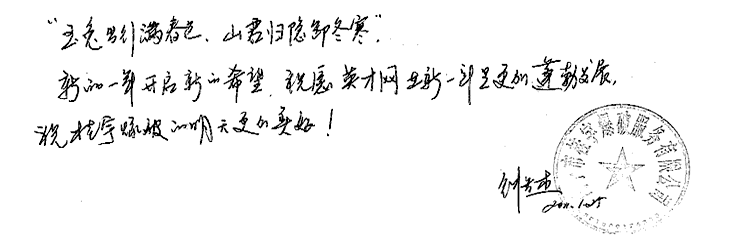 "玉兔呈祥满春色,山君归隐卸冬寒"。
新的一年开启新的希望,祝愿英才网在新一年里更加蓬勃发展,
祝桂宇爆破的明天更加美好!
市桂宇爆破服务有限公司
2011.1.25